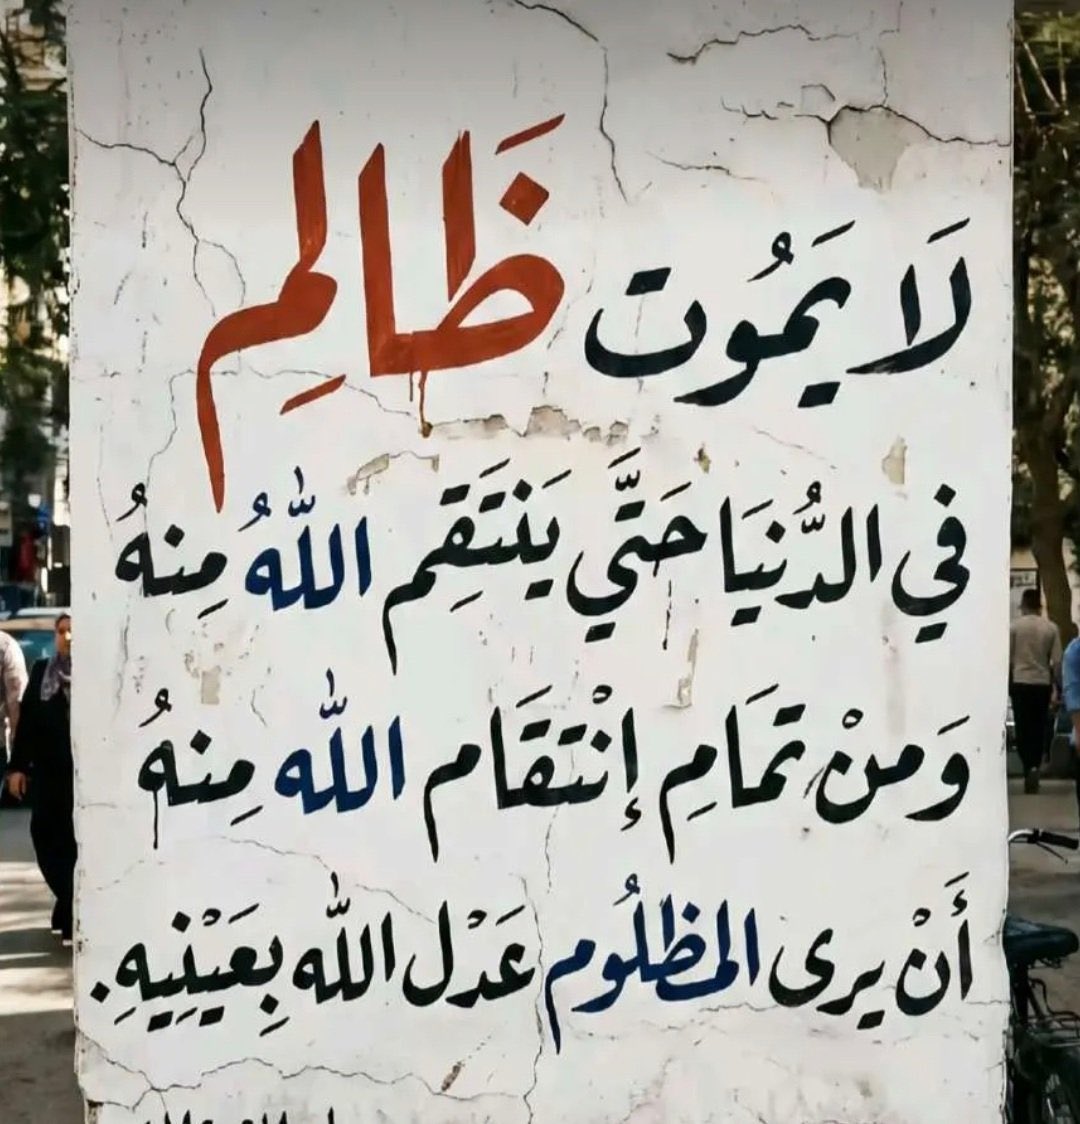 لَا يَمُوت ظَالِم
في الدُّنيَا حَتَّي يَنتَقِم اللّٰهُ مِنهُ
وَمنْ تمَامِ إنْتقَام اللّٰه مِنهُ
أَنْ يرى المظلُوم عَدْل اللّٰه بِعَيْنِيهِ.